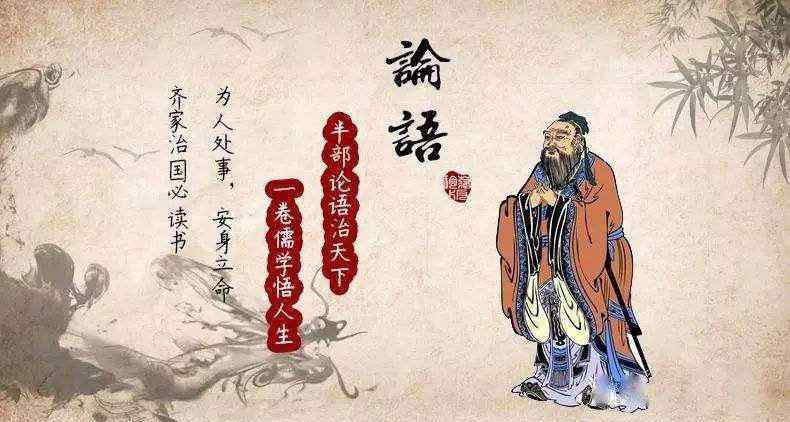 論語
半部论语治天下
一卷儒学悟人生
为人处事，安身立命
齐家治国必读书